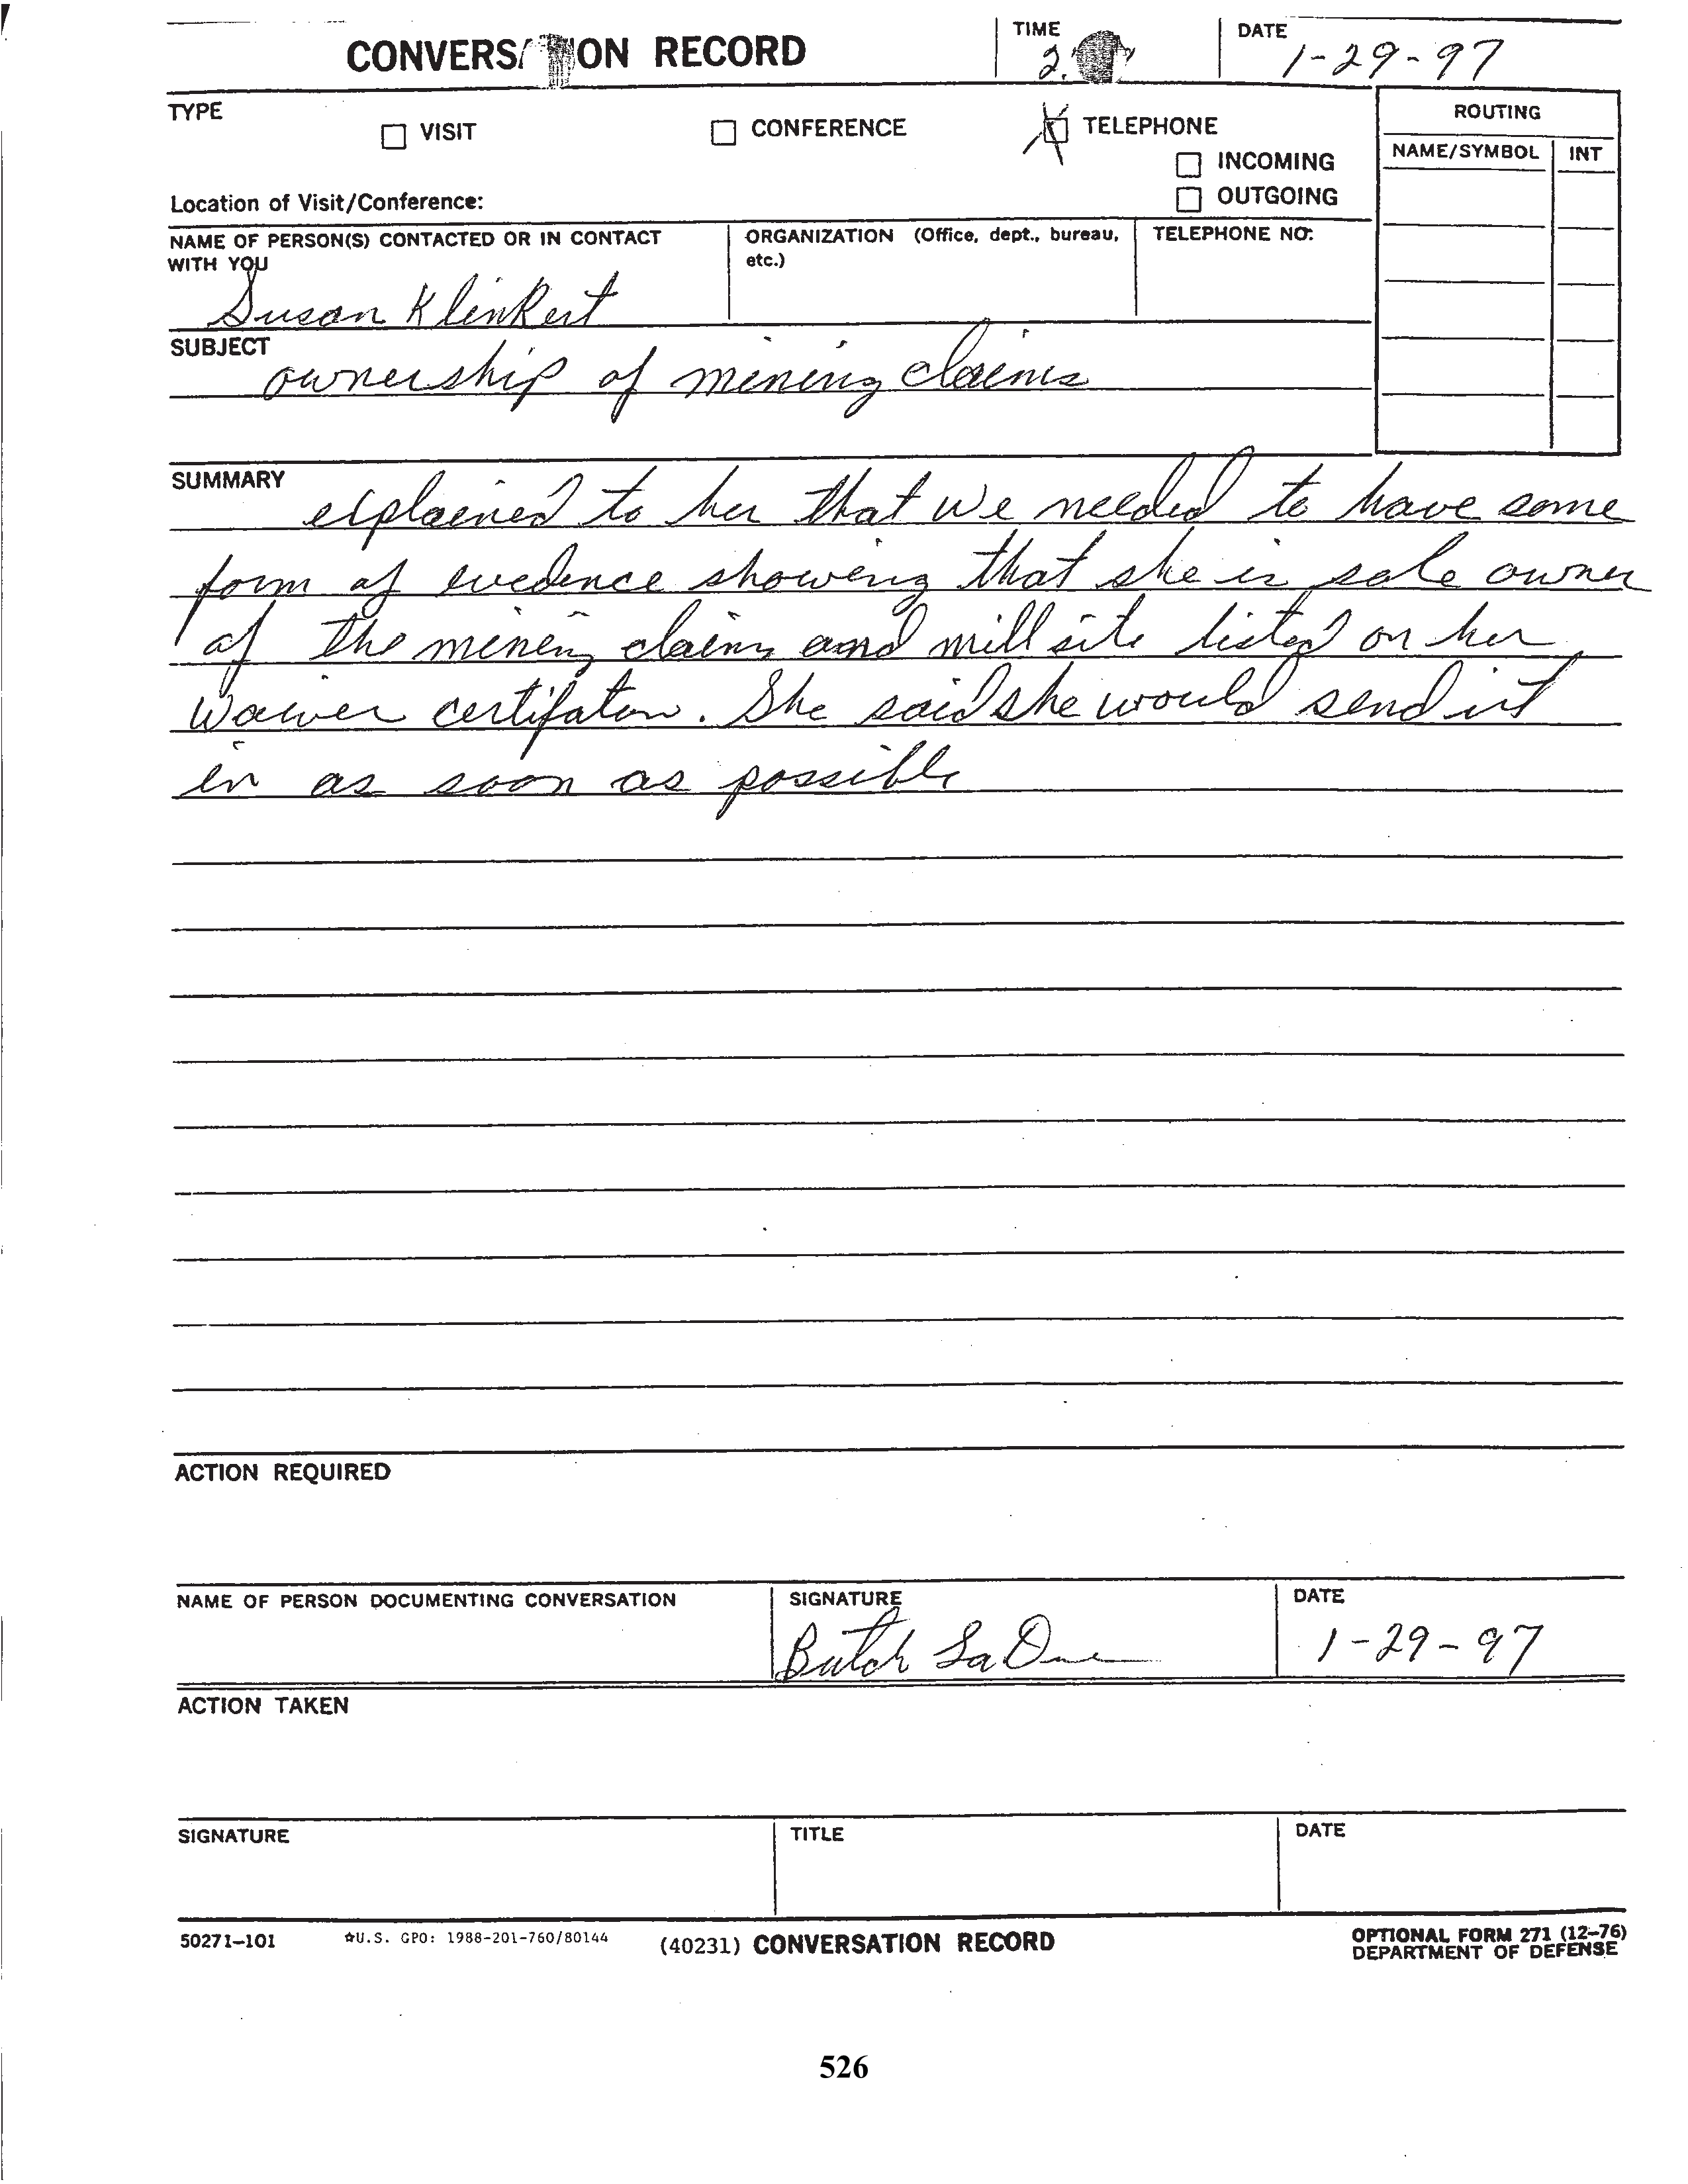 CONVERSATION RECORD
TIME
2.
DATE
1-29-97
TYPE
VISIT
CONFERENCE
TELEPHONE
INCOMING
OUTGOING
ROUTING
NAME/SYMBOL
INT
Location of Visit/Conference:
NAME OF PERSON(S) CONTACTED OR IN CONTACT
WITH YOU
Susan Klinkert
ORGANIZATION (Office, dept., bureau,
etc.)
TELEPHONE NO:
SUBJECT
ownership of mining claims
SUMMARY
explained to her that we needed to have some
form of evedence showing that she is sole owner
of the mining claims and mill site listed on her
waiver certifaton. She said she would send it
in as soon as possible
ACTION REQUIRED
NAME OF PERSON DOCUMENTING CONVERSATION
SIGNATURE
Butch
DATE
1-29-97
ACTION TAKEN
SIGNATURE
TITLE
DATE
50271-101
☆U.S. GPO: 1988-201-760/80144
(40231) CONVERSATION RECORD
OPTIONAL FORM 271 (12-76)
DEPARTMENT OF DEFENSE
526